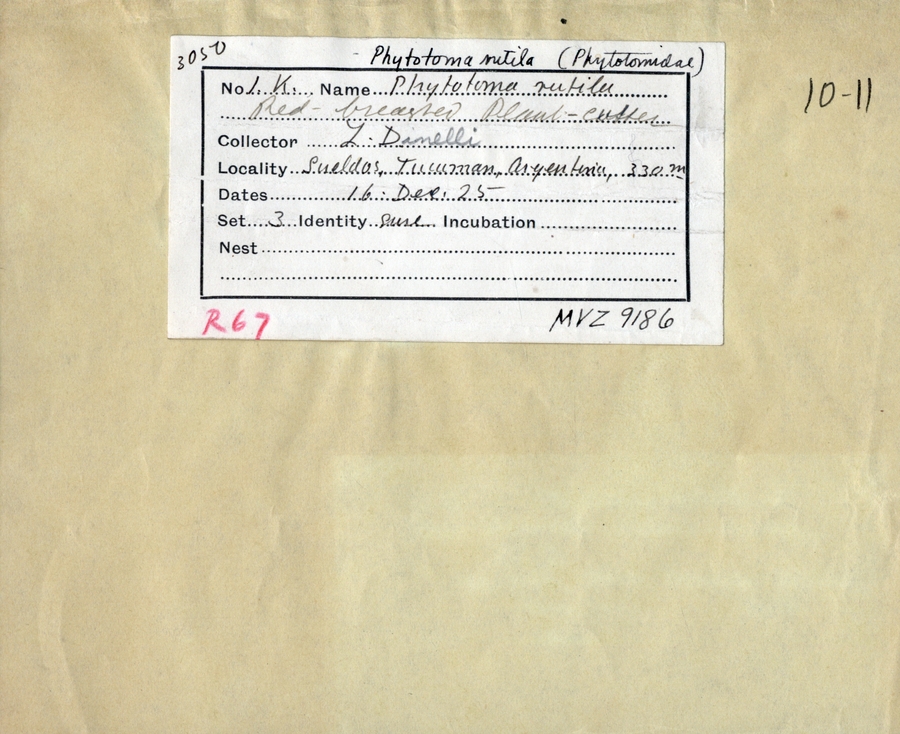 3050
Phytotoma rutila (Phytotomidae)
10-11
No. 1. K. Name Phytotoma rutila
Red-breasted Plant-cutter
Collector L. Dinelli
Locality Sueldos, Tucuman, Argentina, 330 m
Dates 16. Dec. 25
Set 3 Identity sure Incubation
Nest
R67
MVZ 9186